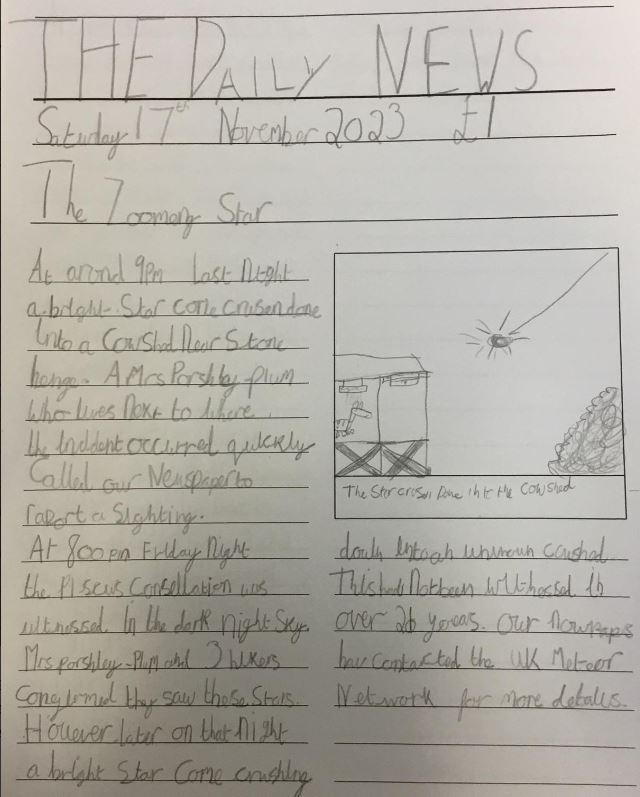 THE DAILY NEWS
Saturday 17th November 2023 £1
The Zoomeng Star
At arond 9pm last Night
a bright Star come crusen done
Into a Cowshed Near Stone
henge. A Mrs Porshley-plum
Who lives Next to where
the Inddent occurred quickely
Called our Newspaper to
raport a Sighting.
At 800pm Friday Night
the Piscus Consellation was
witnessed in the dark night Sky.
Mrs porshley-Plum and 3 hikers
Congermed they saw these Stars.
However later on that Night
a bright Star Come crushing
The Star crusen Done into the Cowshed
down into an unnown cowshed.
This had Not been witnessed in
over 26 yeras. Our
hav contacted the UK Meteor
Network for more details.